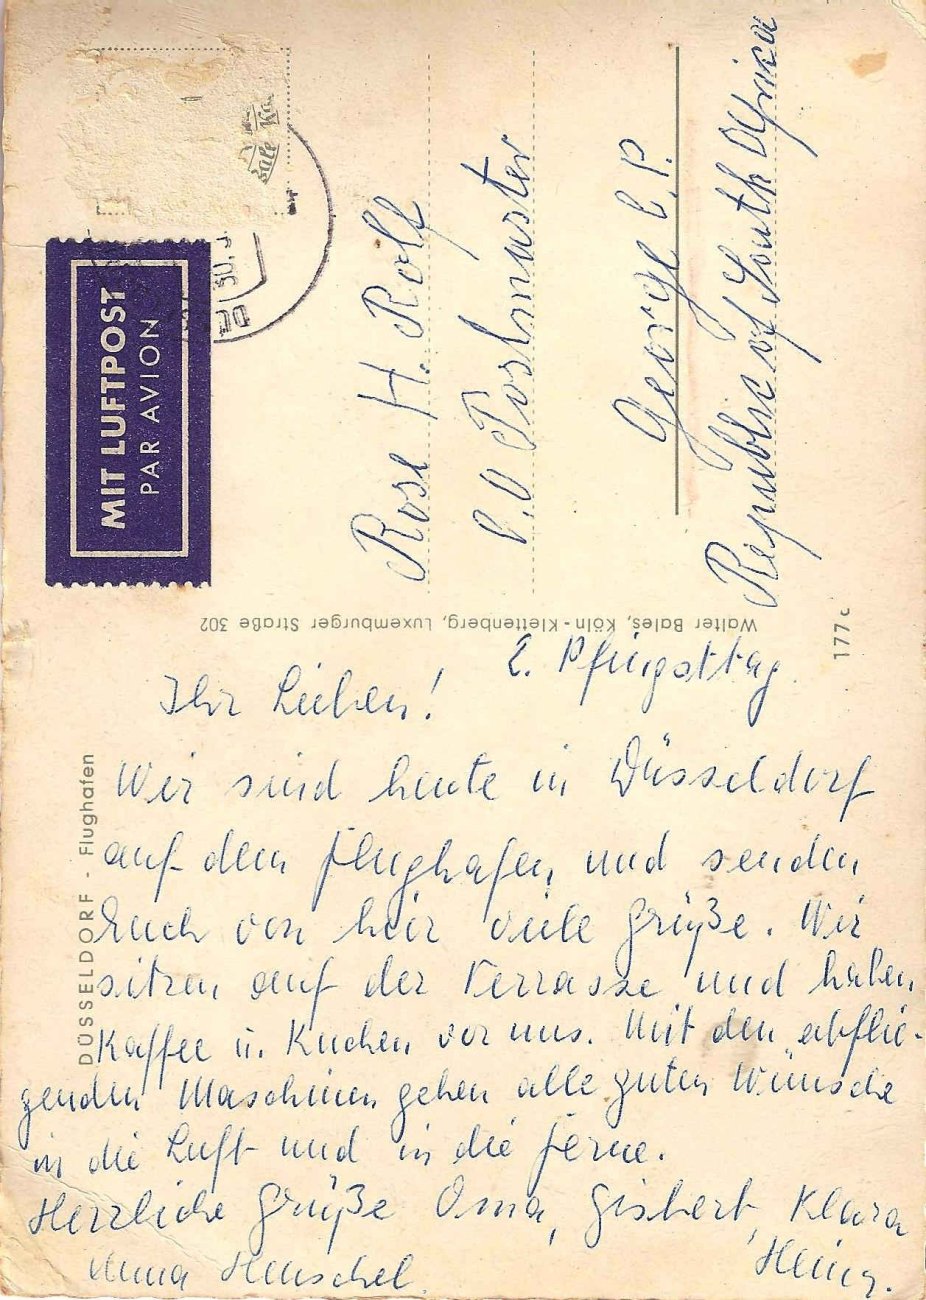 MIT LUFTPOST
PAR AVION
30.
Rose H. Rolf
C.O Postmaster
George C.P.
Republic of South Afrika
Walter Bales, Köln-Klettenberg, Luxemburger Straße 302
177c
DÜSSELDORF - Flughafen
2. Pfingsttag.
Ihr Lieben!
Wir sind heute in Düsseldorf
auf dem Flughafen und senden
Euch von hier viele Grüße. Wir
sitzen auf der Terrasse und haben
Kaffee u. Kuchen vor uns. Mit den abflie-
genden Maschinen gehen alle guten Wünsche
in die Luft und in die Ferne.
Herzliche Grüße Oma, Gisbert, Klara
Heinz.
Anna Henschel.